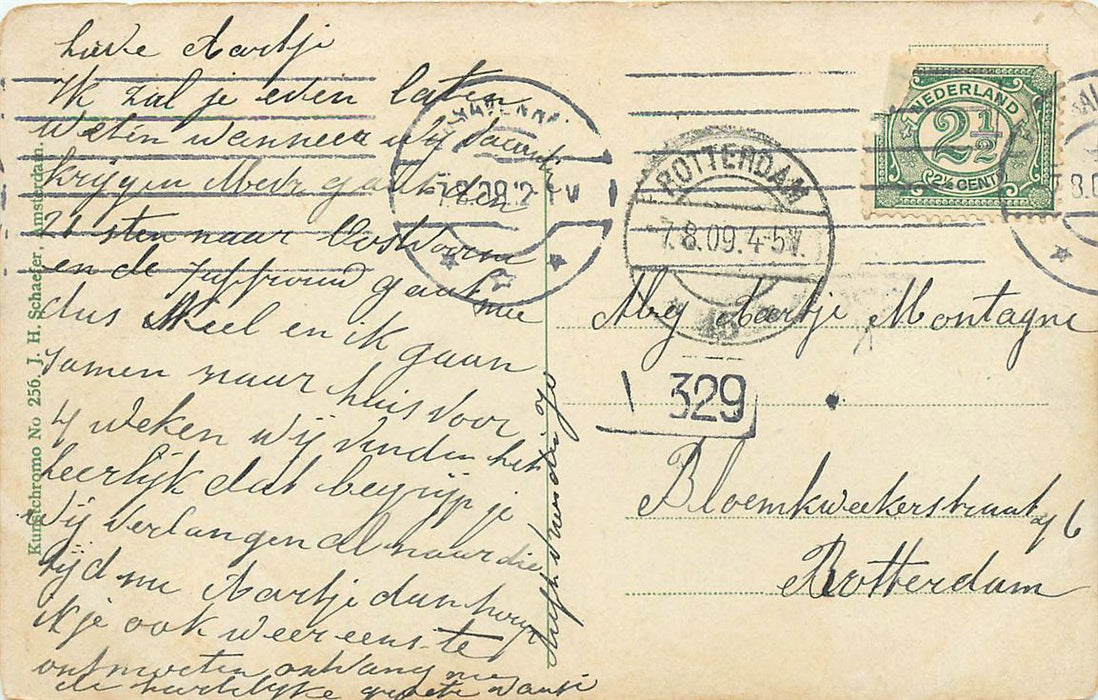 Lieve Aartje
Ik zal je even laten
weten wanneer wij vacantie
krijgen Mevr gaat den
21 sten naar Oostvoorne
en de Juffrouw gaat mee
dus Neel en ik gaan
samen naar huis voor
4 weken wij vinden het
heerlijk dat begrijp je
wij verlangen al naar die
tijd nu Aartje dan hoop
ik je ook weer eens te
ontmoeten ontvang nu
de hartelijke groete van je
vriendin Jo
Kunstchromo No 256. J. H. Schaefer, Amsterdam.
7.8.09
ROTTERDAM
7.8.09.4-5V.
NEDERLAND
2½
2½ CENT
Mej Aartje Montagne
1 329
Bloemkweekerstraat 76
Rotterdam